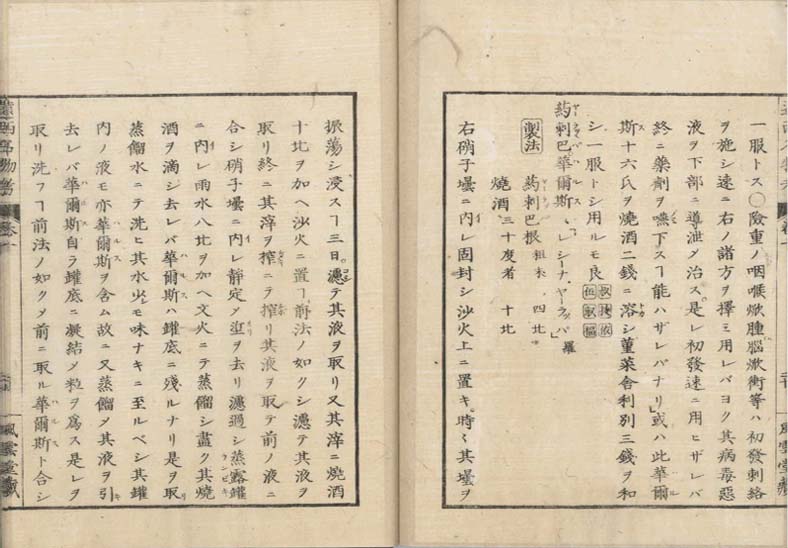 一服トス○險重ノ咽喉焮腫腦焮衝等ハ初發刺絡
ヲ施シ速ニ右ノ諸方ヲ擇ミ用レバヨク其病毒惡
液ヲ下部ニ導泄メ治ス是レ初發速ニ用ヒザレバ
終ニ藥劑ヲ嚥下スルヿ能ハザレバナリ或ハ此華爾
斯十六氏ヲ燒酒二錢ニ溶シ菫菜舍利別三錢ヲ和
シ一服トシ用ルモ良
葯刺巴華爾斯 レシーナ、ヤーラッパ 羅
製法 葯刺巴根 粗末 四𠤎
燒酒 三十度者 十𠤎
右硝子壜ニ内レ固封シ沙火上ニ置キ時々其壜ヲ
振蕩シ浸スヿ三日濾テ其液ヲ取リ又其滓ニ燒酒
十𠤎ヲ加ヘ沙火ニ置ヿ前法ノ如クシ濾テ其液ヲ
取リ終ニ其滓ヲ搾ニテ搾リ其液ヲ取テ前ノ液ニ
合シ硝子壜ニ内レ靜定メ滓ヲ去リ濾過シ蒸露罐
ニ内レ雨水八𠤎ヲ加ヘ文火ニテ蒸餾シ盡ク其燒
酒ヲ滴シ去レバ華爾斯ハ罐底ニ殘ルナリ是ヲ取
蒸餾水ニテ洗ヒ其水少モ味ナキニ至ルベシ其罐
内ノ液モ亦華爾斯ヲ含ム故ニ又蒸餾メ其液ヲ引
去レバ華爾斯自ラ罐底ニ凝結メ粒ヲ爲ス是レヲ
取リ洗フヿ前法ノ如クメ前ニ取ル華爾斯ト合シ
風雲堂藏